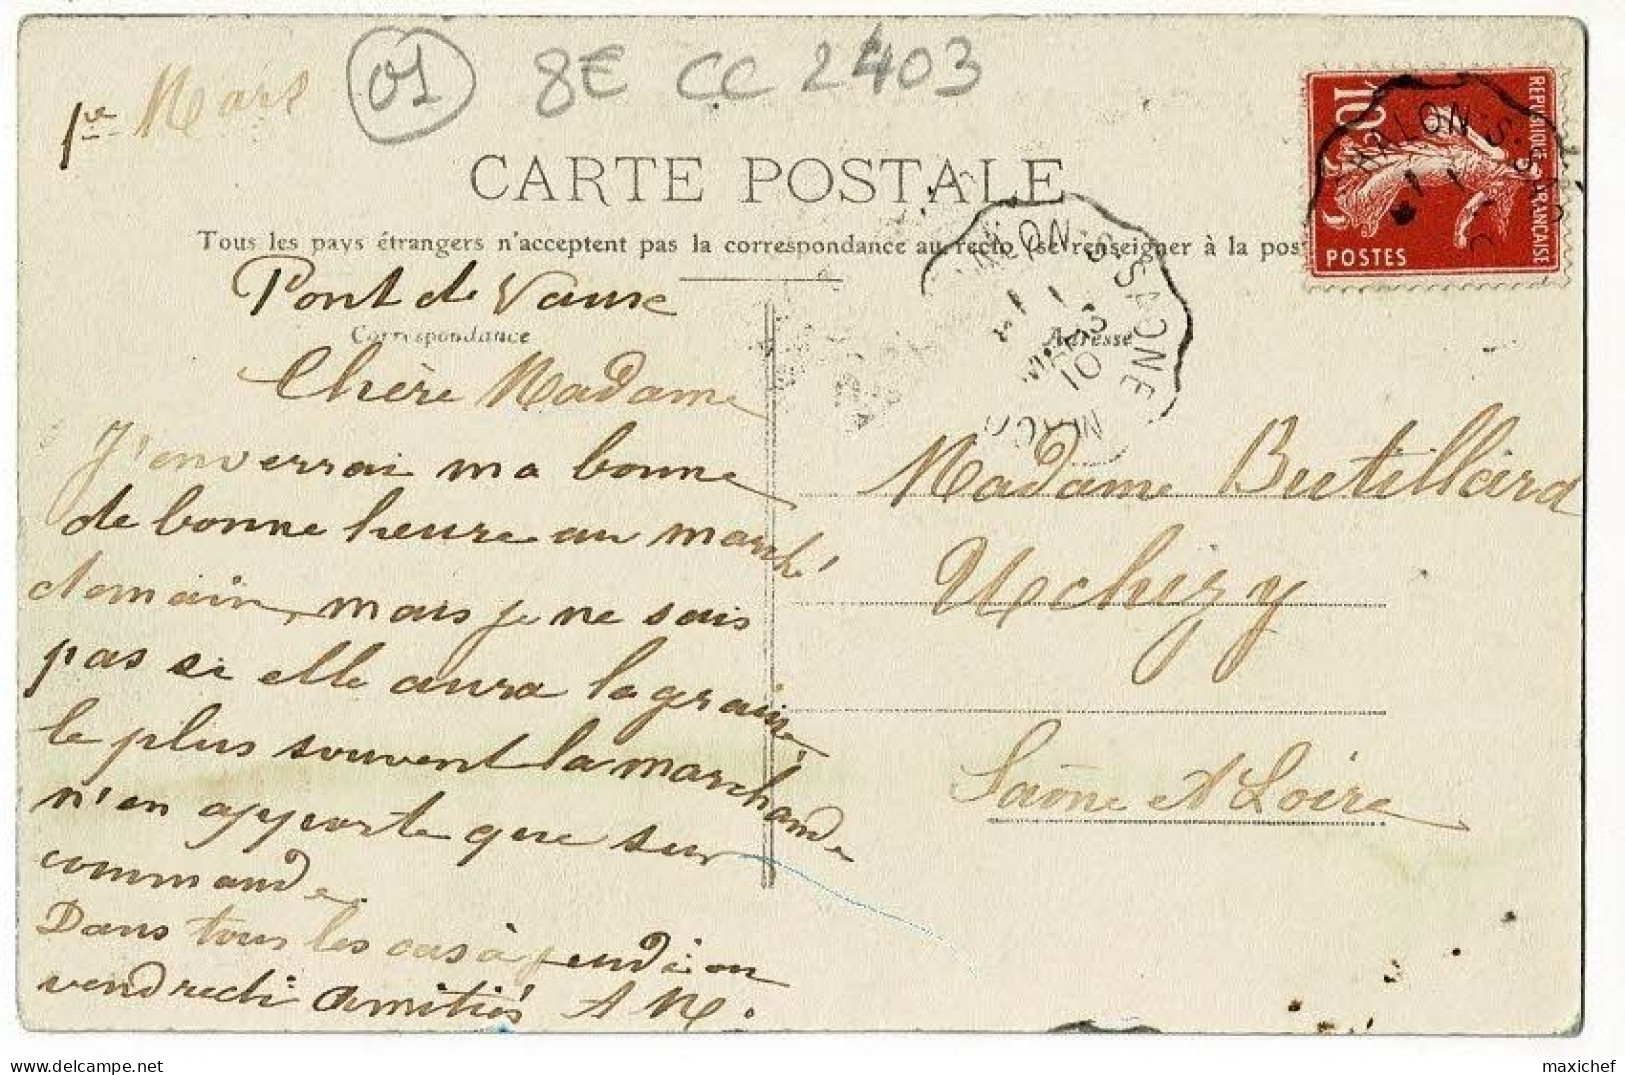 1re Mars
01
8€ CC 2403
CARTE POSTALE
Tous les pays étrangers n'acceptent pas la correspondance au recto (se renseigner à la pos
REPUBLIQUE FRANCAISE
10c
POSTES
CHALON-S-S
Pont de Vaux
Correspondance
Adresse
CHALON-S-SAONE
MARS
10
MACON
Chère Madame
J'enverrai ma bonne
de bonne heure au marché
demain, mais je ne sais
pas si elle aura la graine,
le plus souvent la marchande
n'en apporte que sur
commande.
Dans tous les cas à jeudi ou
vendredi Amitiés A M.
Madame Butillard
Uchizy
Saône et Loire
maxichef